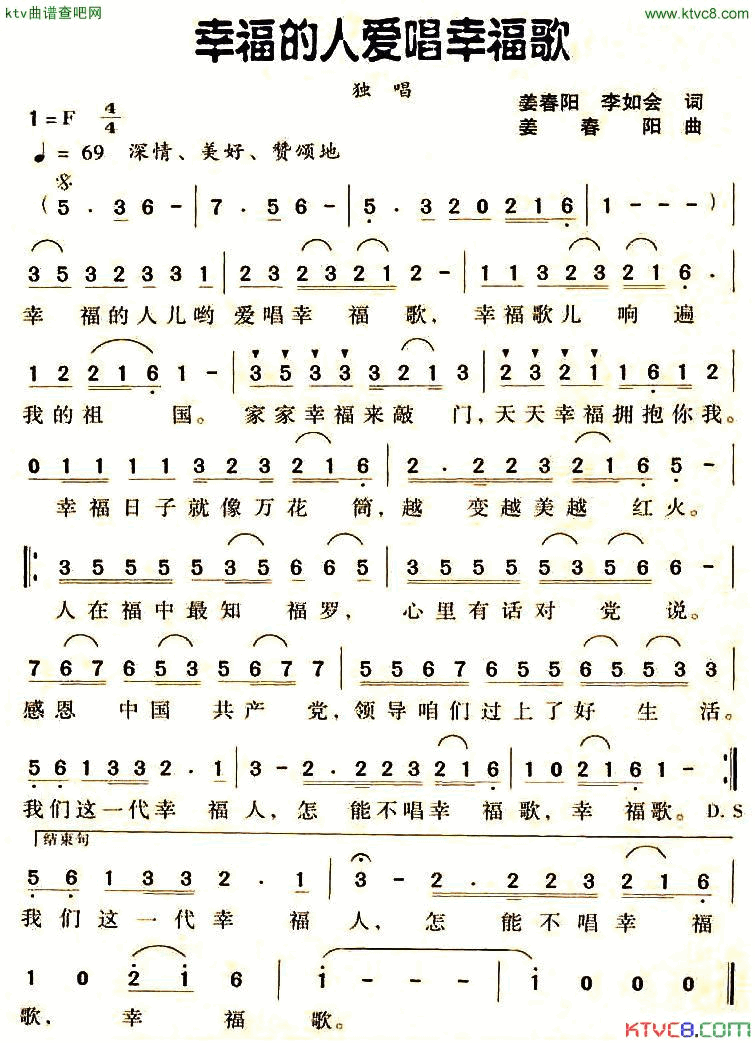 ktv曲谱查吧网
www.ktvc8.com
幸福的人爱唱幸福歌
独 唱
1=F 4/4
姜春阳 李如会 词
姜 春 阳 曲
♩= 69 深情、美好、赞颂地
( 5 . 3 6 - | 7 . 5 6 - | 5 . 3 2 0 2 1 6 | 1 - - - ) |
3 5 3 2 3 3 1 | 2 3 2 3 2 1 2 - | 1 1 3 2 3 2 1 6 . |
幸 福的人儿哟 爱唱幸 福 歌, 幸福歌儿 响 遍
1 2 2 1 6 1 - | 3 5 3 3 3 2 1 3 | 2 3 2 1 1 6 1 2 |
我的祖 国。 家家幸福来敲 门,天天幸福拥抱你我。
0 1 1 1 1 3 2 3 2 1 6 | 2 . 2 2 3 2 1 6 5 - |
幸福日子就像万花 筒,越 变越美越 红火。
3 5 5 5 5 3 5 6 6 5 | 3 5 5 5 5 3 5 6 6 - |
人在福中最知 福罗, 心里有话对 党 说。
7 6 7 6 5 3 5 6 7 6 | 5 5 6 7 6 5 5 6 5 5 3 3 |
感恩 中国 共产 党,领导咱们过上了好 生 活。
5 6 1 3 3 2 . 1 | 3 - 2 . 2 2 3 2 1 6 | 1 0 2 1 6 1 - :|
我们这一代幸 福人,怎 能不唱幸 福歌,幸 福歌。D.S
结束句
5 6 1 3 3 2 . 1 | 3 - 2 . 2 2 3 2 1 6 |
我们这一代幸 福 人, 怎 能不唱幸 福
1 0 2 1 6 | 1 - - - | 1 0 0 0 ‖
歌, 幸 福 歌。
KTVC8.COM